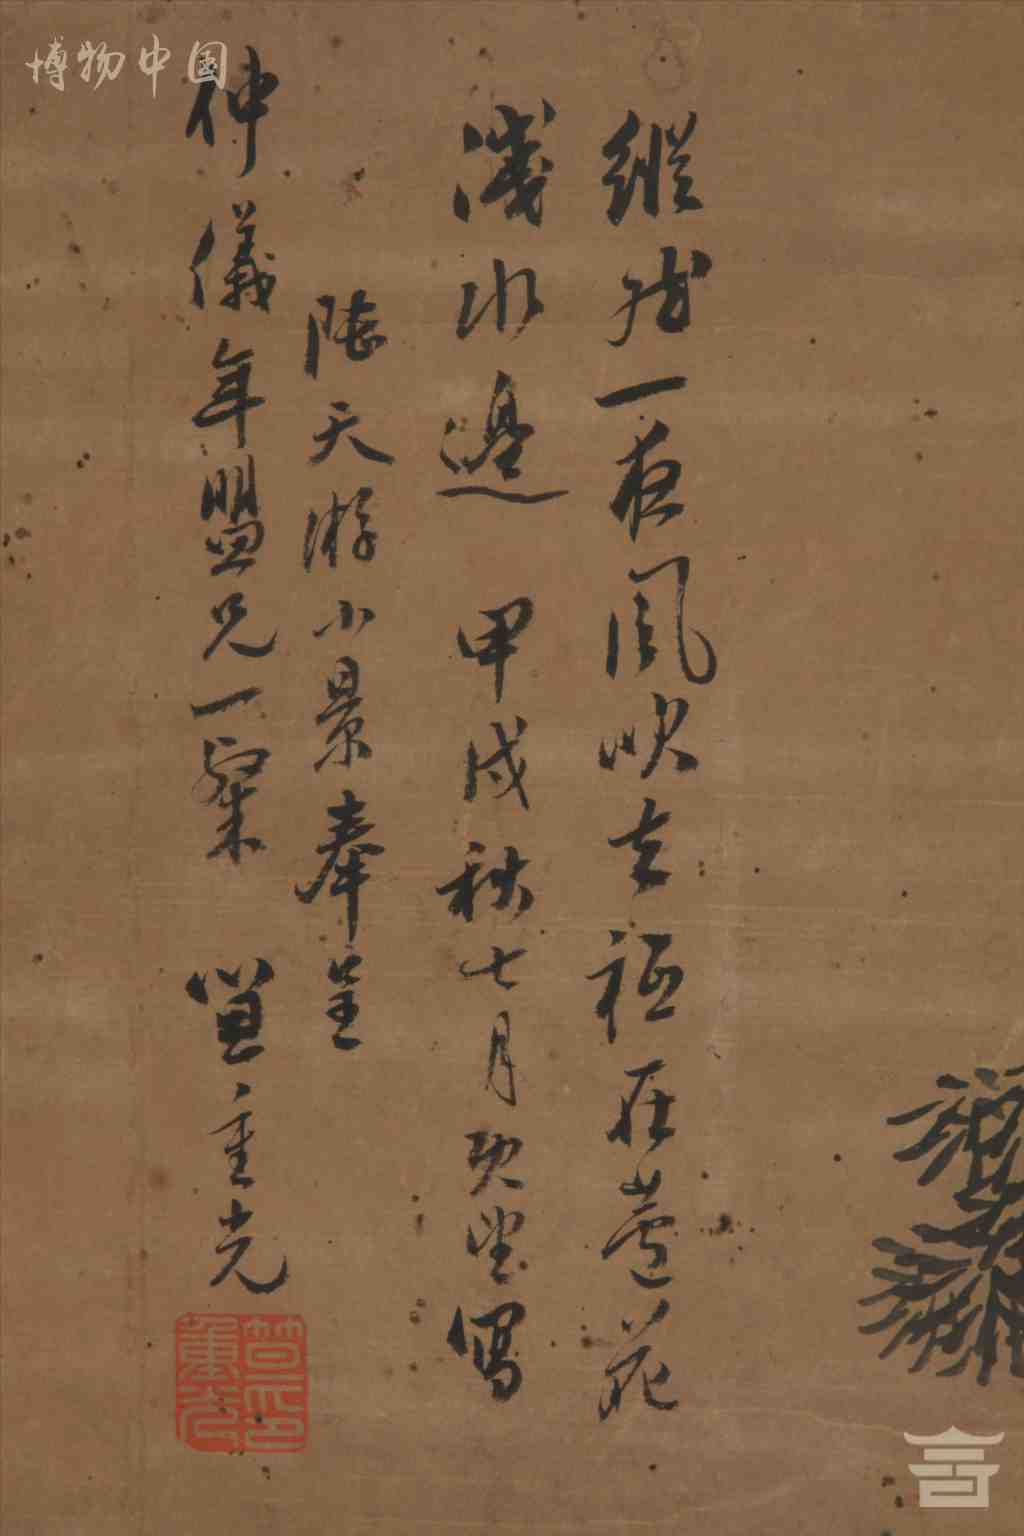 縱然一夜風吹去秖在蘆花
淺水邊 甲戌秋七月既望寫
陸天游小景奉呈
仲儀年盟兄一粲 笪重光
笪重光印
博物中国